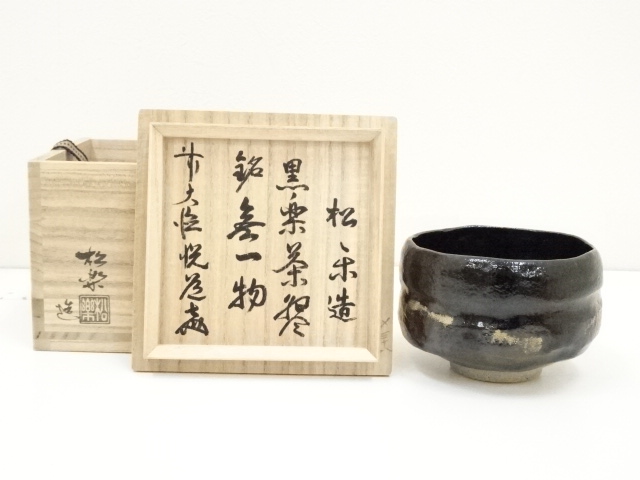 松楽造
黒楽茶碗
銘 無一物
前大徳悦道
松楽
造